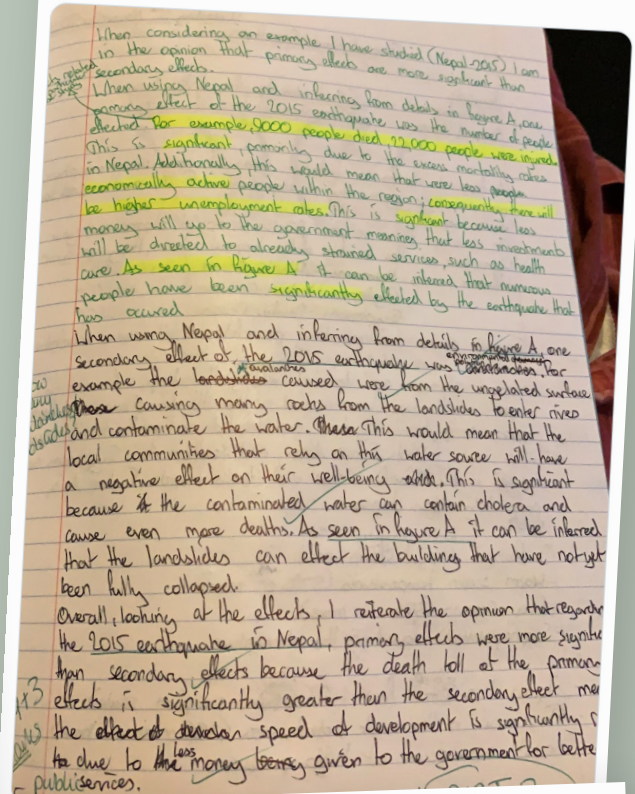 When considering an example I have studied (Nepal-2015) I am
in the opinion that primary effects are more significant than
secondary effects.
When using Nepal and inferring from details in figure A, one
primary effect of the 2015 earthquake was the number of people
effected. For example, 9000 people died, 22,000 people were injured
This is significant, primarily due to the excess mortality rates
in Nepal. Additionally, this would mean that were less people
economically active people within the region; consequently there will
be higher unemployment rates. This is significant because less
money will up to the government meaning that less investments
will be directed to already strained services, such as health
care. As seen in figure A it can be inferred that numerous
people have been significantly effected by the earthquake that
has occured
When using Nepal and inferring from details in figure A, one
secondary effect of, the 2015 earthquake was contamination. For
avalanches
example the landslides caused were from the ungelated surface
These causing many rocks from the landslides to enter rives
and contaminate the water. These This would mean that the
local communities that rely on this water source will have
a negative effect on their well-being. This is significant
because if the contaminated water can contain cholera and
cause even more deaths. As seen in figure A it can be inferred
that the landslides can effect the buildings that have not yet
been fully collapsed.
Overall, looking at the effects, I reiterate the opinion that
the 2015 earthquake in Nepal, primary effects were more
than secondary effects because the death toll at the primary
effects is significantly greater than the secondary effect
the effect of speed of development is significantly
due to the less money being given to the government for
public services.